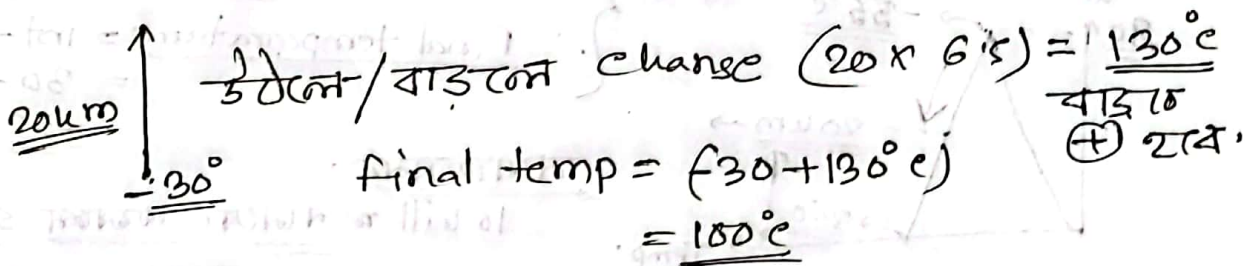 উঠলে/বাড়লে change (20 x 6.5) = 130°c
20km বাড়লে
⊕ হবে.
-30° final temp = (-30+130°c)
= 100°c